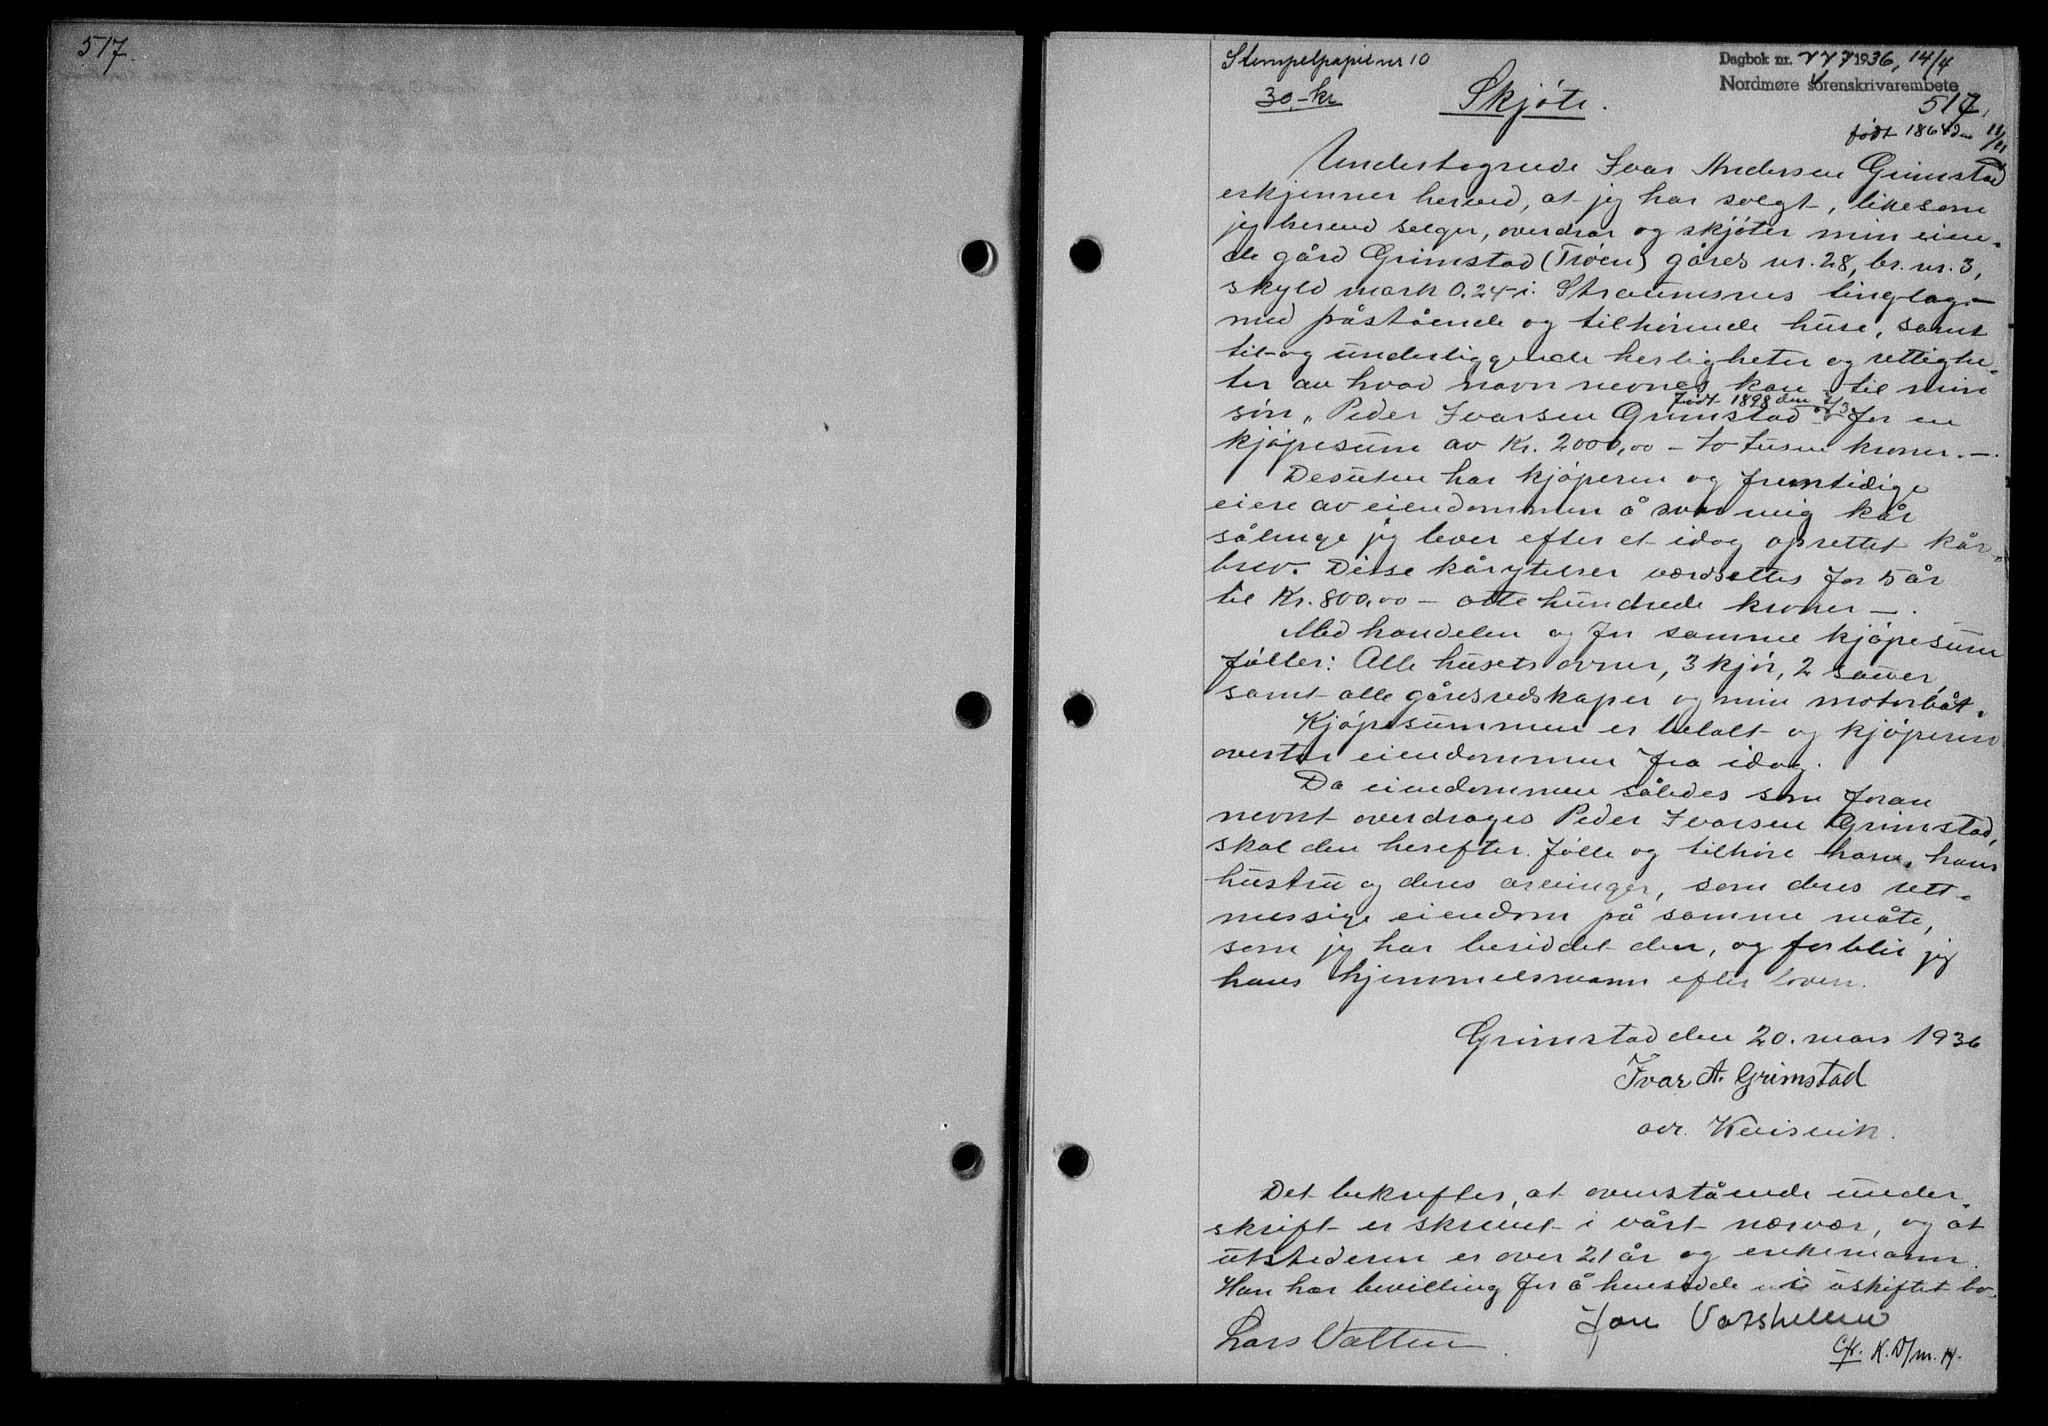 517.
Stempelpapir nr 10
30,- kr
Dagbok nr. 777 1936, 14/4
Nordmøre sorenskrivarembete
Skjøte.
517.
født 1864 den 11/11
Undertegnede Ivar Andersen Grimstad
erkjenner herved, at jeg har solgt, likesom
jeg herved selger, overdrar og skjøter min eien-
de gård Grimstad (Trøen) gårds nr. 28, br. nr. 3,
skyld mark 0.24 i Straumsnes tinglag -
med påstående og tilhørende huse, samt
til- og underliggende herligheter og rettighe-
ter av hvad navn nevnes kan - til min
født 1898 den
søn, Peder Ivarsen Grimstad - for en
kjøpesum av Kr. 2000,00 - to tusen kroner. -.
Desuten har kjøperen og fremtidige
eiere av eiendommen å svar mig kår
sålenge jeg lever efter et idag oprettet kår-
brev. Disse kårytelser værdsettes for 5 år
til Kr. 800,00 - otte hundrede kroner -.
Med handelen og for samme kjøpesum
føller: Alle husets ovner, 3 kjør, 2 sauer,
samt alle gårdsredskaper og min motorbåt.
Kjøpesummen er betalt og kjøperen
overtar eiendommen fra idag.
Da eiendommen således som foran
nevnt overdrages Peder Ivarsen Grimstad,
skal den herefter følle og tilhøre ham, hans
hustru og deres arvinger, som deres rett-
messige eiendom på samme måte,
som jeg har besiddet den, og forblir jeg
hans hjemmelsmann efter loven.
Grimstad den 20. mars 1936
Ivar A. Grimstad
adr. Kvisvik.
Det bekreftes, at ovenstående under-
skrift er skrevet i vårt nærvær, og at
utstederen er over 21 år og enkemann.
Han har bevilling for å hensidde i uskiftet bo.
Jon
Lars Vatten
Cfr. K. D/m. 14.